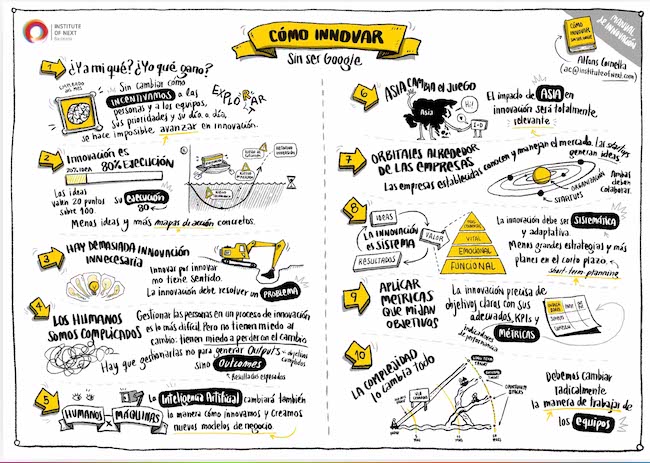 INSTITUTE
OF NEXT
CÓMO INNOVAR
Sin ser Google
CÓMO
INNOVAR
SIN SER GOOGLE
MANUAL
DE INNOVACIÓN
Alfons Cornella
(ac@instituteofnext.com)
1
¿Ya mi qué? ¿Yo qué gano?
EMPLEADO
DEL MES
Sin cambiar cómo
INCENTIVAMOS a las
personas y a los equipos,
sus prioridades y su día a día,
se hace imposible avanzar en innovación.
EXPLORAR
2
Innovación es
20% IDEA 80% EJECUCIÓN
Las ideas
valen 20 puntos su EJECUCIÓN
sobre 100. 80
Menos ideas y más mapas de acción concretos.
3
HAY DEMASIADA INNOVACIÓN
INNECESARIA
Innovar por innovar
no tiene sentido.
La innovación debe resolver un PROBLEMA
4
LOS HUMANOS
SOMOS COMPLICADOS
Gestionar las personas en un proceso de innovación
es lo más difícil. Pero no tienen miedo al
cambio: tienen miedo a perder con el cambio
Hay que gestionarlas no para generar Outputs → objetivos
cumplidos
sino OUTCOMES
Resultados esperados
5
HUMANOS X MÁQUINAS
La Inteligencia Artificial cambiará también
la manera cómo innovamos y creamos
nuevos modelos de negocio.
6
ASIA CAMBIA EL JUEGO
Asia
Hi!
I+D
El impacto de ASIA en
innovación será totalmente
relevante
7
ORBITALES ALREDEDOR
DE LAS EMPRESAS
Las empresas establecidas conocen y manejan el mercado. Las startups
generan ideas
ORGANIZACIÓN
STARTUPS
Ambas
deben
colaborar.
8
IDEAS
LA INNOVACIÓN
ES SISTEMA
RESULTADOS
VALOR
VITAL
EMOCIONAL
FUNCIONAL
La innovación debe ser SISTEMÁTICA
y adaptativa.
Menos grandes estrategias y más
planes en el corto plazo.
short-term-planning
9
APLICAR
MÉTRICAS
QUE MIDAN
OBJETIVOS
La innovación precisa de
objetivos claros con sus
adecuados, KPIs y
indicadores
de performancia
MÉTRICAS
10
LA COMPLEJIDAD
lo cambia todo
Debemos cambiar
radicalmente
la manera de trabajar de
los equipos